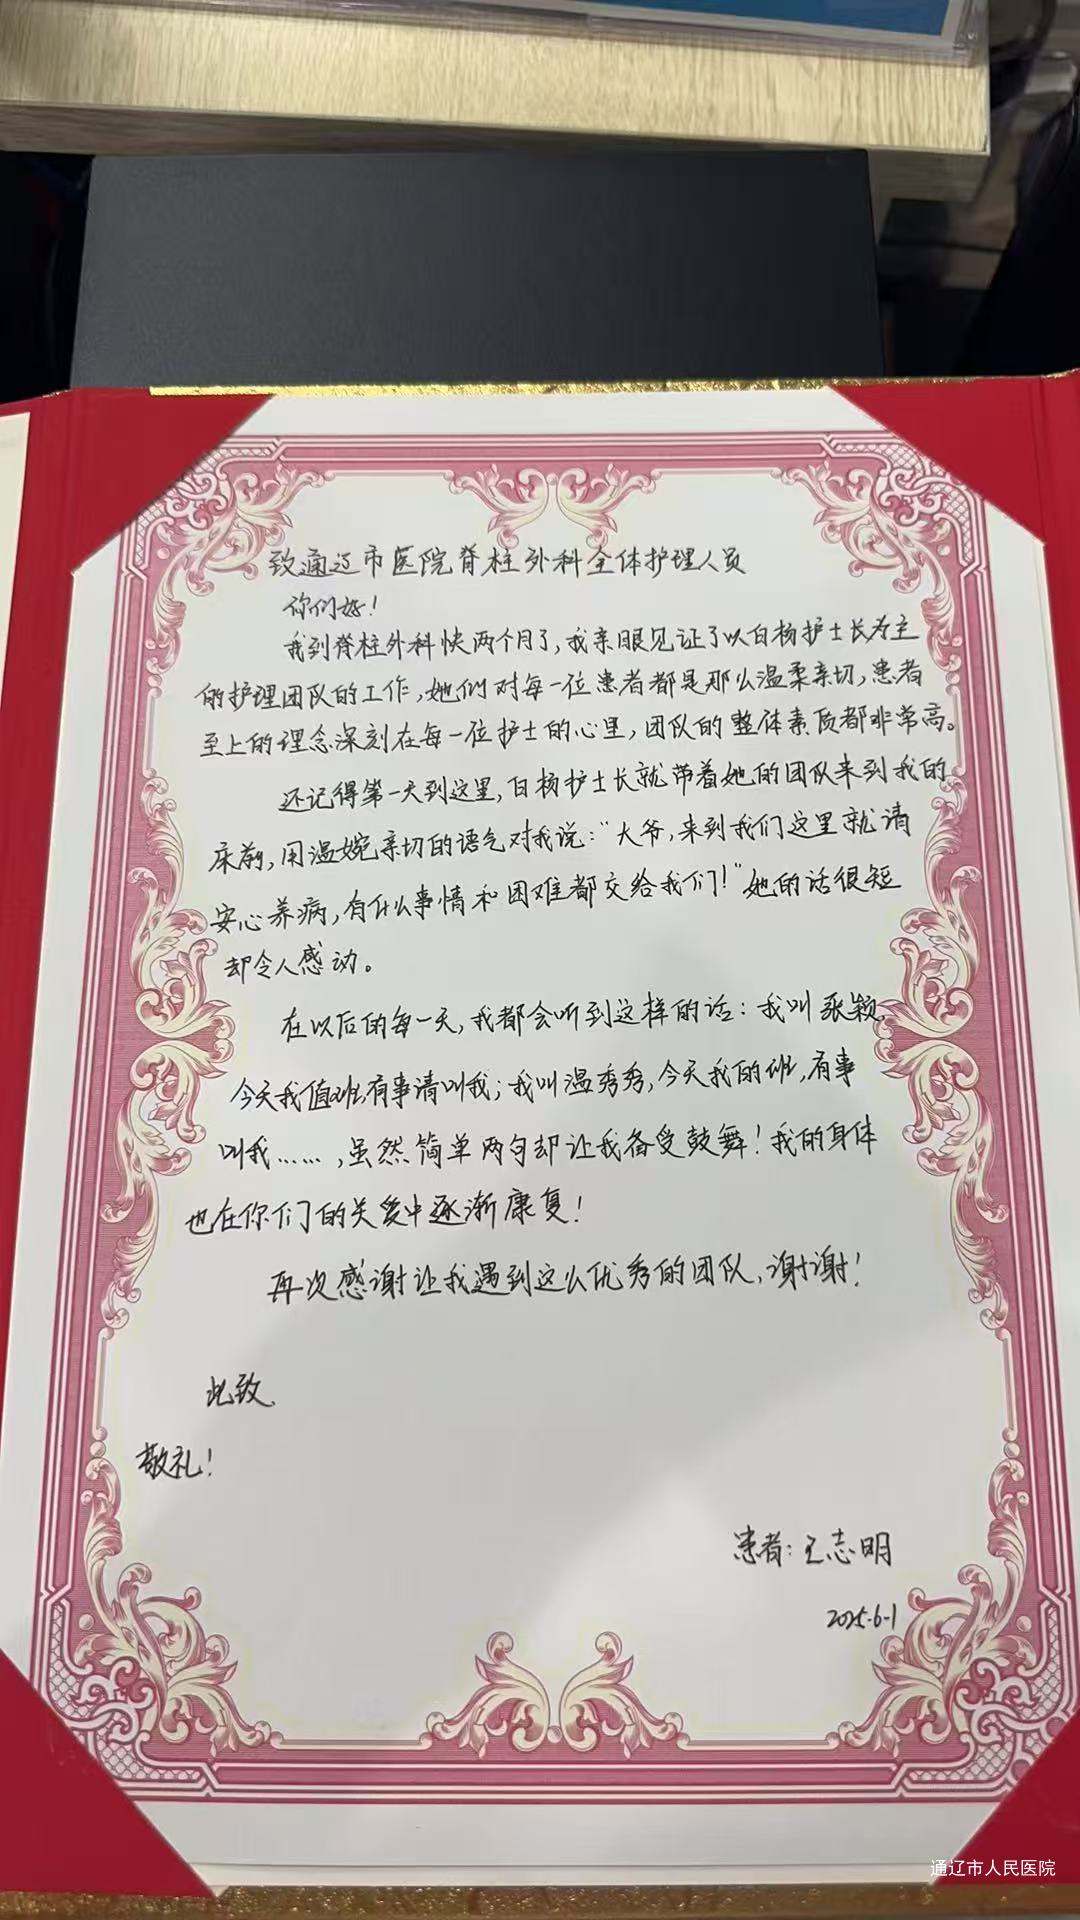 致通辽市医院脊柱外科全体护理人员
你们好！
我到脊柱外科快两个月了，我亲眼见证了以白杨护士长为主
的护理团队的工作，她们对每一位患者都是那么温柔亲切，患者
至上的理念深刻在每一位护士的心里，团队的整体素质都非常高。
还记得第一天到这里，白杨护士长就带着她的团队来到我的
床前，用温婉亲切的语气对我说：“大爷，来到我们这里就请
安心养病，有什么事情和困难都交给我们！”她的话很短
却令人感动。
在以后的每一天，我都会听到这样的话：我叫张颖，
今天我值班，有事请叫我；我叫温秀秀，今天我的班，有事
叫我……，虽然简单两句却让我备受鼓舞！我的身体
也在你们的关爱中逐渐康复！
再次感谢让我遇到这么优秀的团队，谢谢！
此致
敬礼！
患者：王志明
2025.6-1
通辽市人民医院